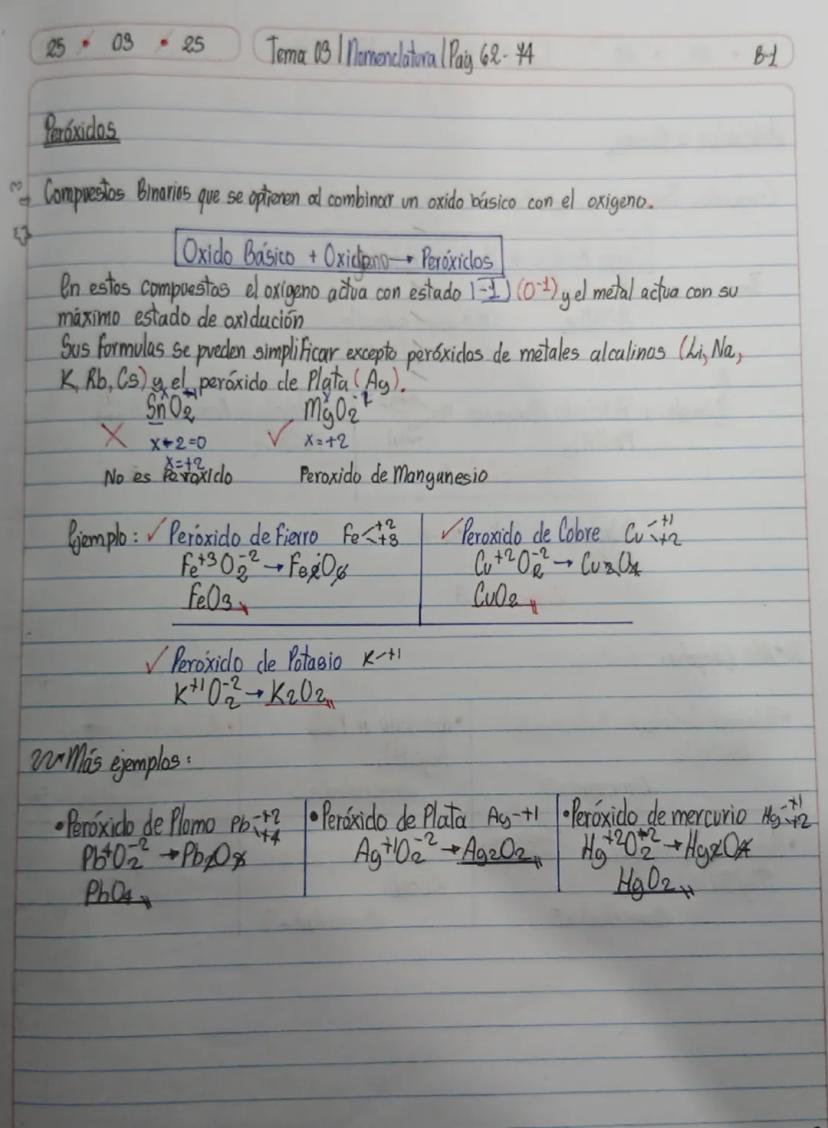 25 • 03 • 25
Tema 03 | Nomenclatura | Paig 62 - 74
B-1
Peróxidos
Compuestos Binarios que se optienen al combinar un oxido básico con el oxigeno.
Oxido Básico + Oxigeno → Peróxidos
En estos compuestos el oxígeno actua con estado (-1) (O-1) y el metal actua con su
máximo estado de oxidución
Sus formulas se pueden simplificar excepto peróxidos de metales alcalinos (Li, Na,
K, Rb, Cs) y el peróxido de Plata (Ag).
SnO2
MgO2
x+2=0
x=+2
x=+2
No es Peroxido
Peroxido de Manganesio
Ejemplo: ✓ Peróxido de Fierro Fe +2 +3
✓ Peroxido de Cobre Cu +1 +2
Fe+3O2-2 → Fe2O6
Cu+2O2-2 → Cu2O4
FeO3
CuO2
✓ Peróxido de Potasio K-+1
K+1O2-2 → K2O2
Más ejemplos:
• Peróxido de Plomo Pb +2 +4
• Peróxido de Plata Ag-+1
• Peróxido de mercurio Hg +1 +2
Ag+1O2-2 → Ag2O2
PbO4
HgO2